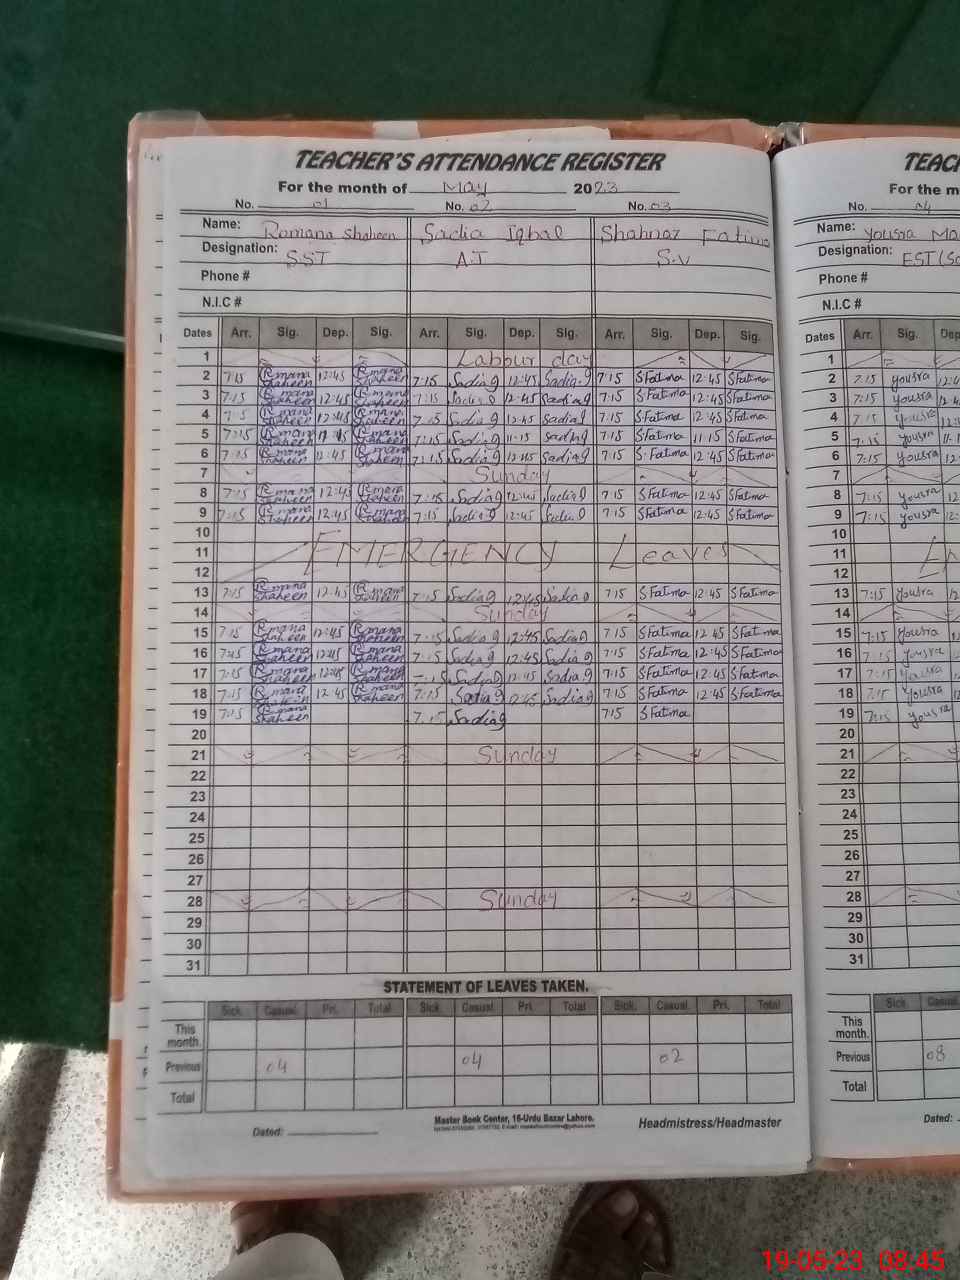 TEACHER'S ATTENDANCE REGISTER
For the month of May 2023
No. 01 No. 02 No. 03
Name: Romana Shaheen Sadia Iqbal Shahnaz Fatima
Designation: SST A.T S.V
Phone #
N.I.C #
Dates Arr. Sig. Dep. Sig. Arr. Sig. Dep. Sig. Arr. Sig. Dep. Sig.
1 Labour day
2 7:15 Romana Shaheen 12:45 Romana Shaheen 7:15 Sadia 12:45 Sadia 7:15 SFatima 12:45 SFatima
3 7:15 Romana Shaheen 12:45 Romana Shaheen 7:15 Sadia 12:45 Sadia 7:15 SFatima 12:45 SFatima
4 7:15 Romana Shaheen 12:45 Romana Shaheen 7:15 Sadia 12:45 Sadia 7:15 SFatima 12:45 SFatima
5 7:15 Romana Shaheen Romana Shaheen 7:15 Sadia 11:15 Sadia 7:15 SFatima 11:15 SFatima
6 7:15 Romana Shaheen 12:45 Romana Shaheen 7:15 Sadia 12:45 Sadia 7:15 S.Fatima 12:45 SFatima
7 Sunday
8 7:15 Romana Shaheen 12:45 Romana Shaheen 7:15 Sadia 12:45 Sadia 7:15 SFatima 12:45 SFatima
9 7:15 Romana Shaheen 12:45 Romana Shaheen 7:15 Sadia 12:45 Sadia 7:15 SFatima 12:45 SFatima
10
11 EMERGENCY Leaves
12
13 7:15 Romana Shaheen 12:45 Romana Shaheen 7:15 Sadia 12:45 Sadia 7:15 SFatima 12:45 SFatima
14 Sunday
15 7:15 Romana Shaheen 12:45 Romana Shaheen 7:15 Sadia 12:45 Sadia 7:15 SFatima 12:45 SFatima
16 Romana Shaheen 12:45 Romana Shaheen 7:15 Sadia 12:45 Sadia 7:15 SFatima 12:45 SFatima
17 7:15 Romana Shaheen 12:45 Romana Shaheen 7:15 Sadia 12:45 Sadia 7:15 SFatima 12:45 SFatima
18 7:15 Romana Shaheen 12:45 Romana Shaheen 7:15 Sadia 12:45 Sadia 7:15 SFatima 12:45 SFatima
19 7:15 Romana Shaheen 7:15 Sadia 7:15 SFatima
20
21 Sunday
22
23
24
25
26
27
28 Sunday
29
30
31
STATEMENT OF LEAVES TAKEN.
Sick. Casual. Pri. Total Sick. Casual. Pri. Total Sick. Casual. Pri. Total
This month.
Previous 04 04 02
Total
Master Book Center, 16-Urdu Bazar Lahore.
Dated: Headmistress/Headmaster
TEAC
For the m
No. 04
Name: Yousra Ma
Designation: EST (Sc
Phone #
N.I.C #
Dates Arr. Sig. Dep
1
2 7:15 yousra
3 7:15 yousra
4 7:15 yousra
5 7:15 yousra
6 7:15 yousra
7
8 7:15 yousra
9 7:15 yousra
10
11
12
13 7:15 yousra
14
15 7:15 yousra
16 7:15 yousra
17 7:15 yousra
18 7:15 yousra
19 7:15 yousra
20
21
22
23
24
25
26
27
28
29
30
31
Sick. Casual
This month.
Previous 08
Total
Dated:
19-05-23 08:45